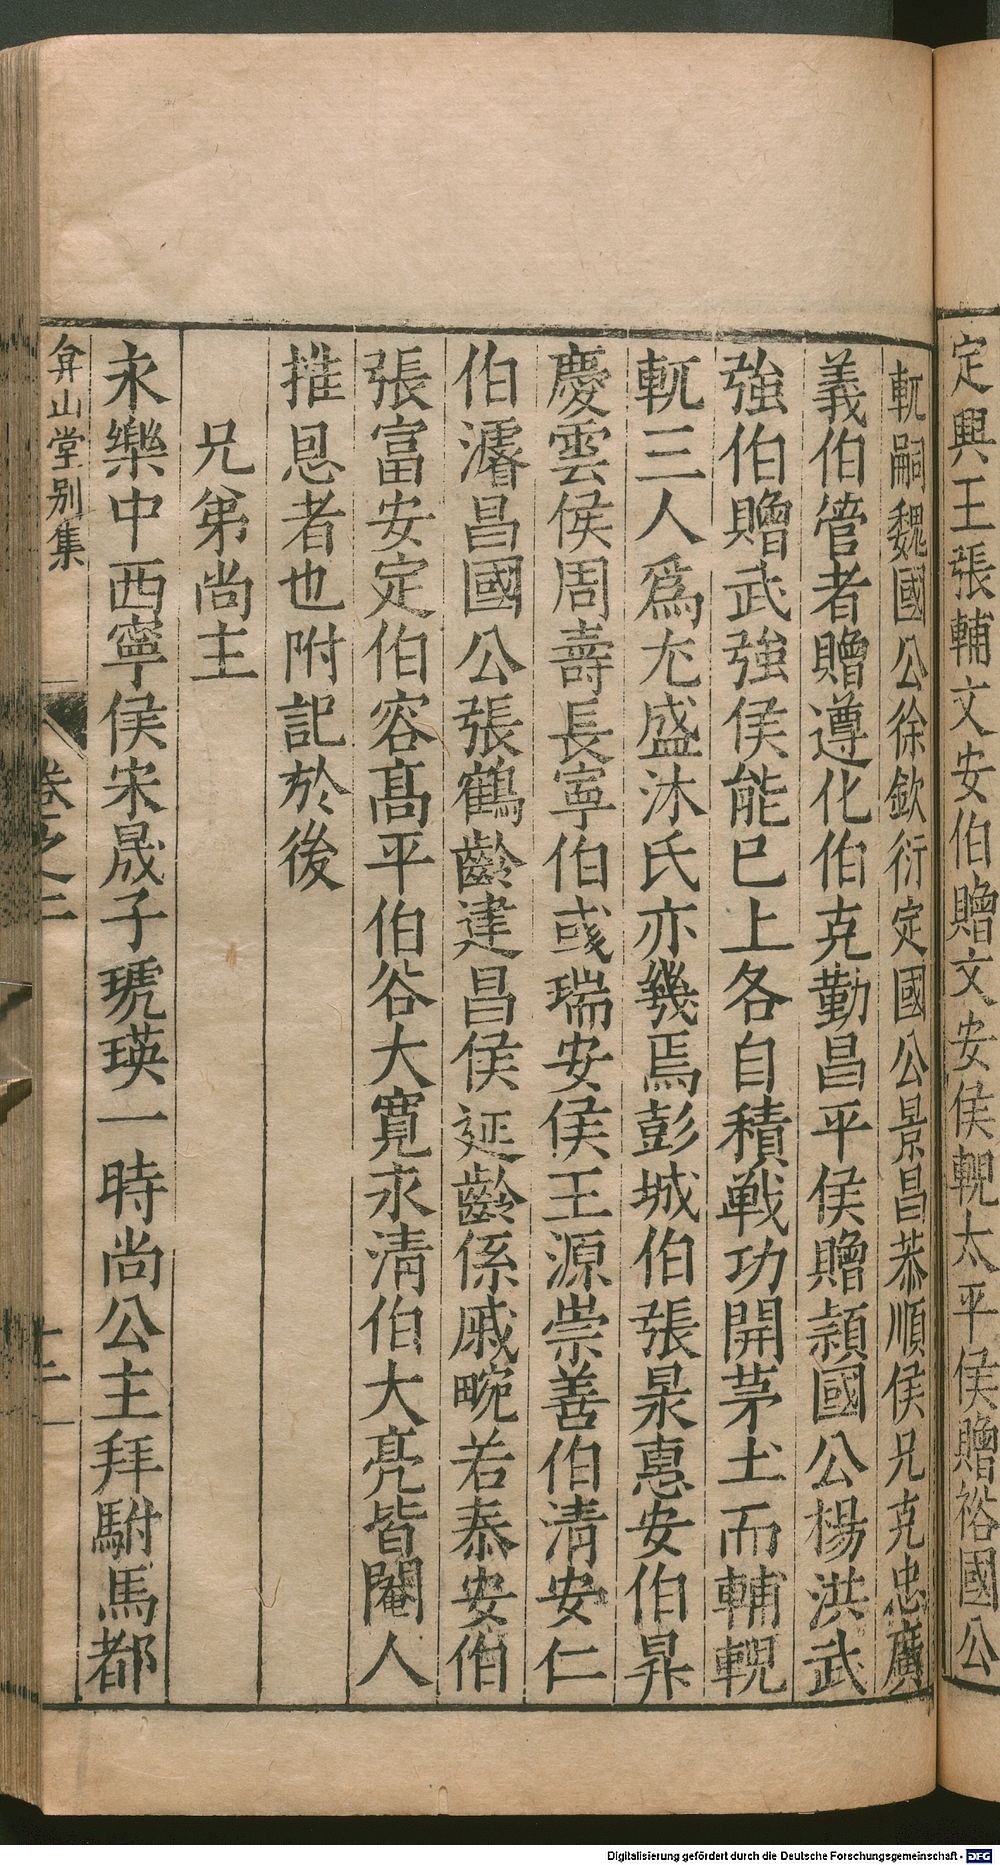 定興王張輔文安伯贈文安侯輗太平侯贈裕國公
軏嗣魏國公徐欽衍定國公景昌恭順侯兄克忠廣
義伯管者贈遵化伯克勤昌平侯贈潁國公楊洪武
強伯贈武強侯能已上各自積戰功開茅土而輔輗
軏三人爲尤盛沐氏亦幾焉彭城伯張杲惠安伯昇
慶雲侯周壽長寧伯彧瑞安侯王源崇善伯清安仁
伯濬昌國公張鶴齡建昌侯延齡係戚畹若泰安伯
張富安定伯容高平伯谷大寬永清伯大亮皆閹人
推恩者也附記於後
兄弟尚主
永樂中西寧侯宋晟子琥瑛一時尚公主拜駙馬都
弇山堂别集
卷之二
十二
Digitalisierung gefördert durch die Deutsche Forschungsgemeinschaft - DFG